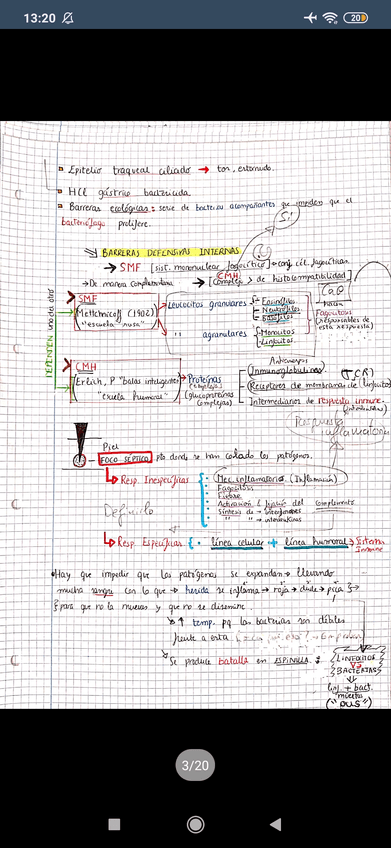 13:20
20
Epitelio traqueal ciliado → tos, estornudo.
HCl gástrico bactericida.
Barreras ecológicas: serie de bacterias acompañantes que impiden que el
bacteriófago prolifere.
Sí
BARRERAS DEFENSIVAS INTERNAS
→ SMF [sist. mononuclear fagocítico] → conj. cél. fagocíticas
CMH
→ De manera complementaria → [Complejo > de histocompatibilidad]
hacen
Fagocitosis
(responsables de
esta respuesta)
DEPENDEN uno de otro
SMF
(Metchnicoff (1902)
"escuela rusa")
Leucocitos granulares
Eosinófilos
Neutrófilos
Basófilos
" agranulares
Monocitos
Linfocitos
CMH
(Erlich, P "balas inteligentes"
"escuela humoral")
Proteínas
(complejas)
(glucoproteínas
complejas)
Anticuerpos
Inmunoglobulinas
(TCR)
Receptores de membrana de (linfocitos)
Intermediarios de respuesta inmune.
Respuesta
Piel
FOCO SÉPTICO pto donde se han colado los patógenos.
Resp. Inespecíficas
Mec. inflamatorio. (Inflamación)
Fagocitosis
Fiebre
Activación y fijación del complemento
Síntesis de → interferones
" " → interleukinas
Resp. Específicas
línea celular + línea humoral → Sistema
Inmune
Hay que impedir que los patógenos se expandan → llevando
mucha sangre con lo que → herida se inflama → roja → duele → pica
para que no la muevas y que no se disemine.
↑ temp. pq las bacterias son débiles
frente a esta
Se produce batalla en ESPINILLA:
LINFOCITOS
VS
BACTERIAS
linf. + bact.
muertas
("PUS")
3/20